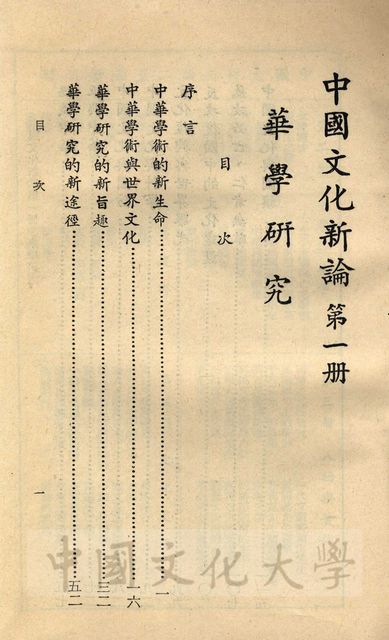 中國文化新論 第一册
華學研究
目次
序言
中華學術的新生命……一
中華學術與世界文化……一六
華學研究的新旨趣……三二
華學研究的新途徑……五二
目次 一
中國文化大學